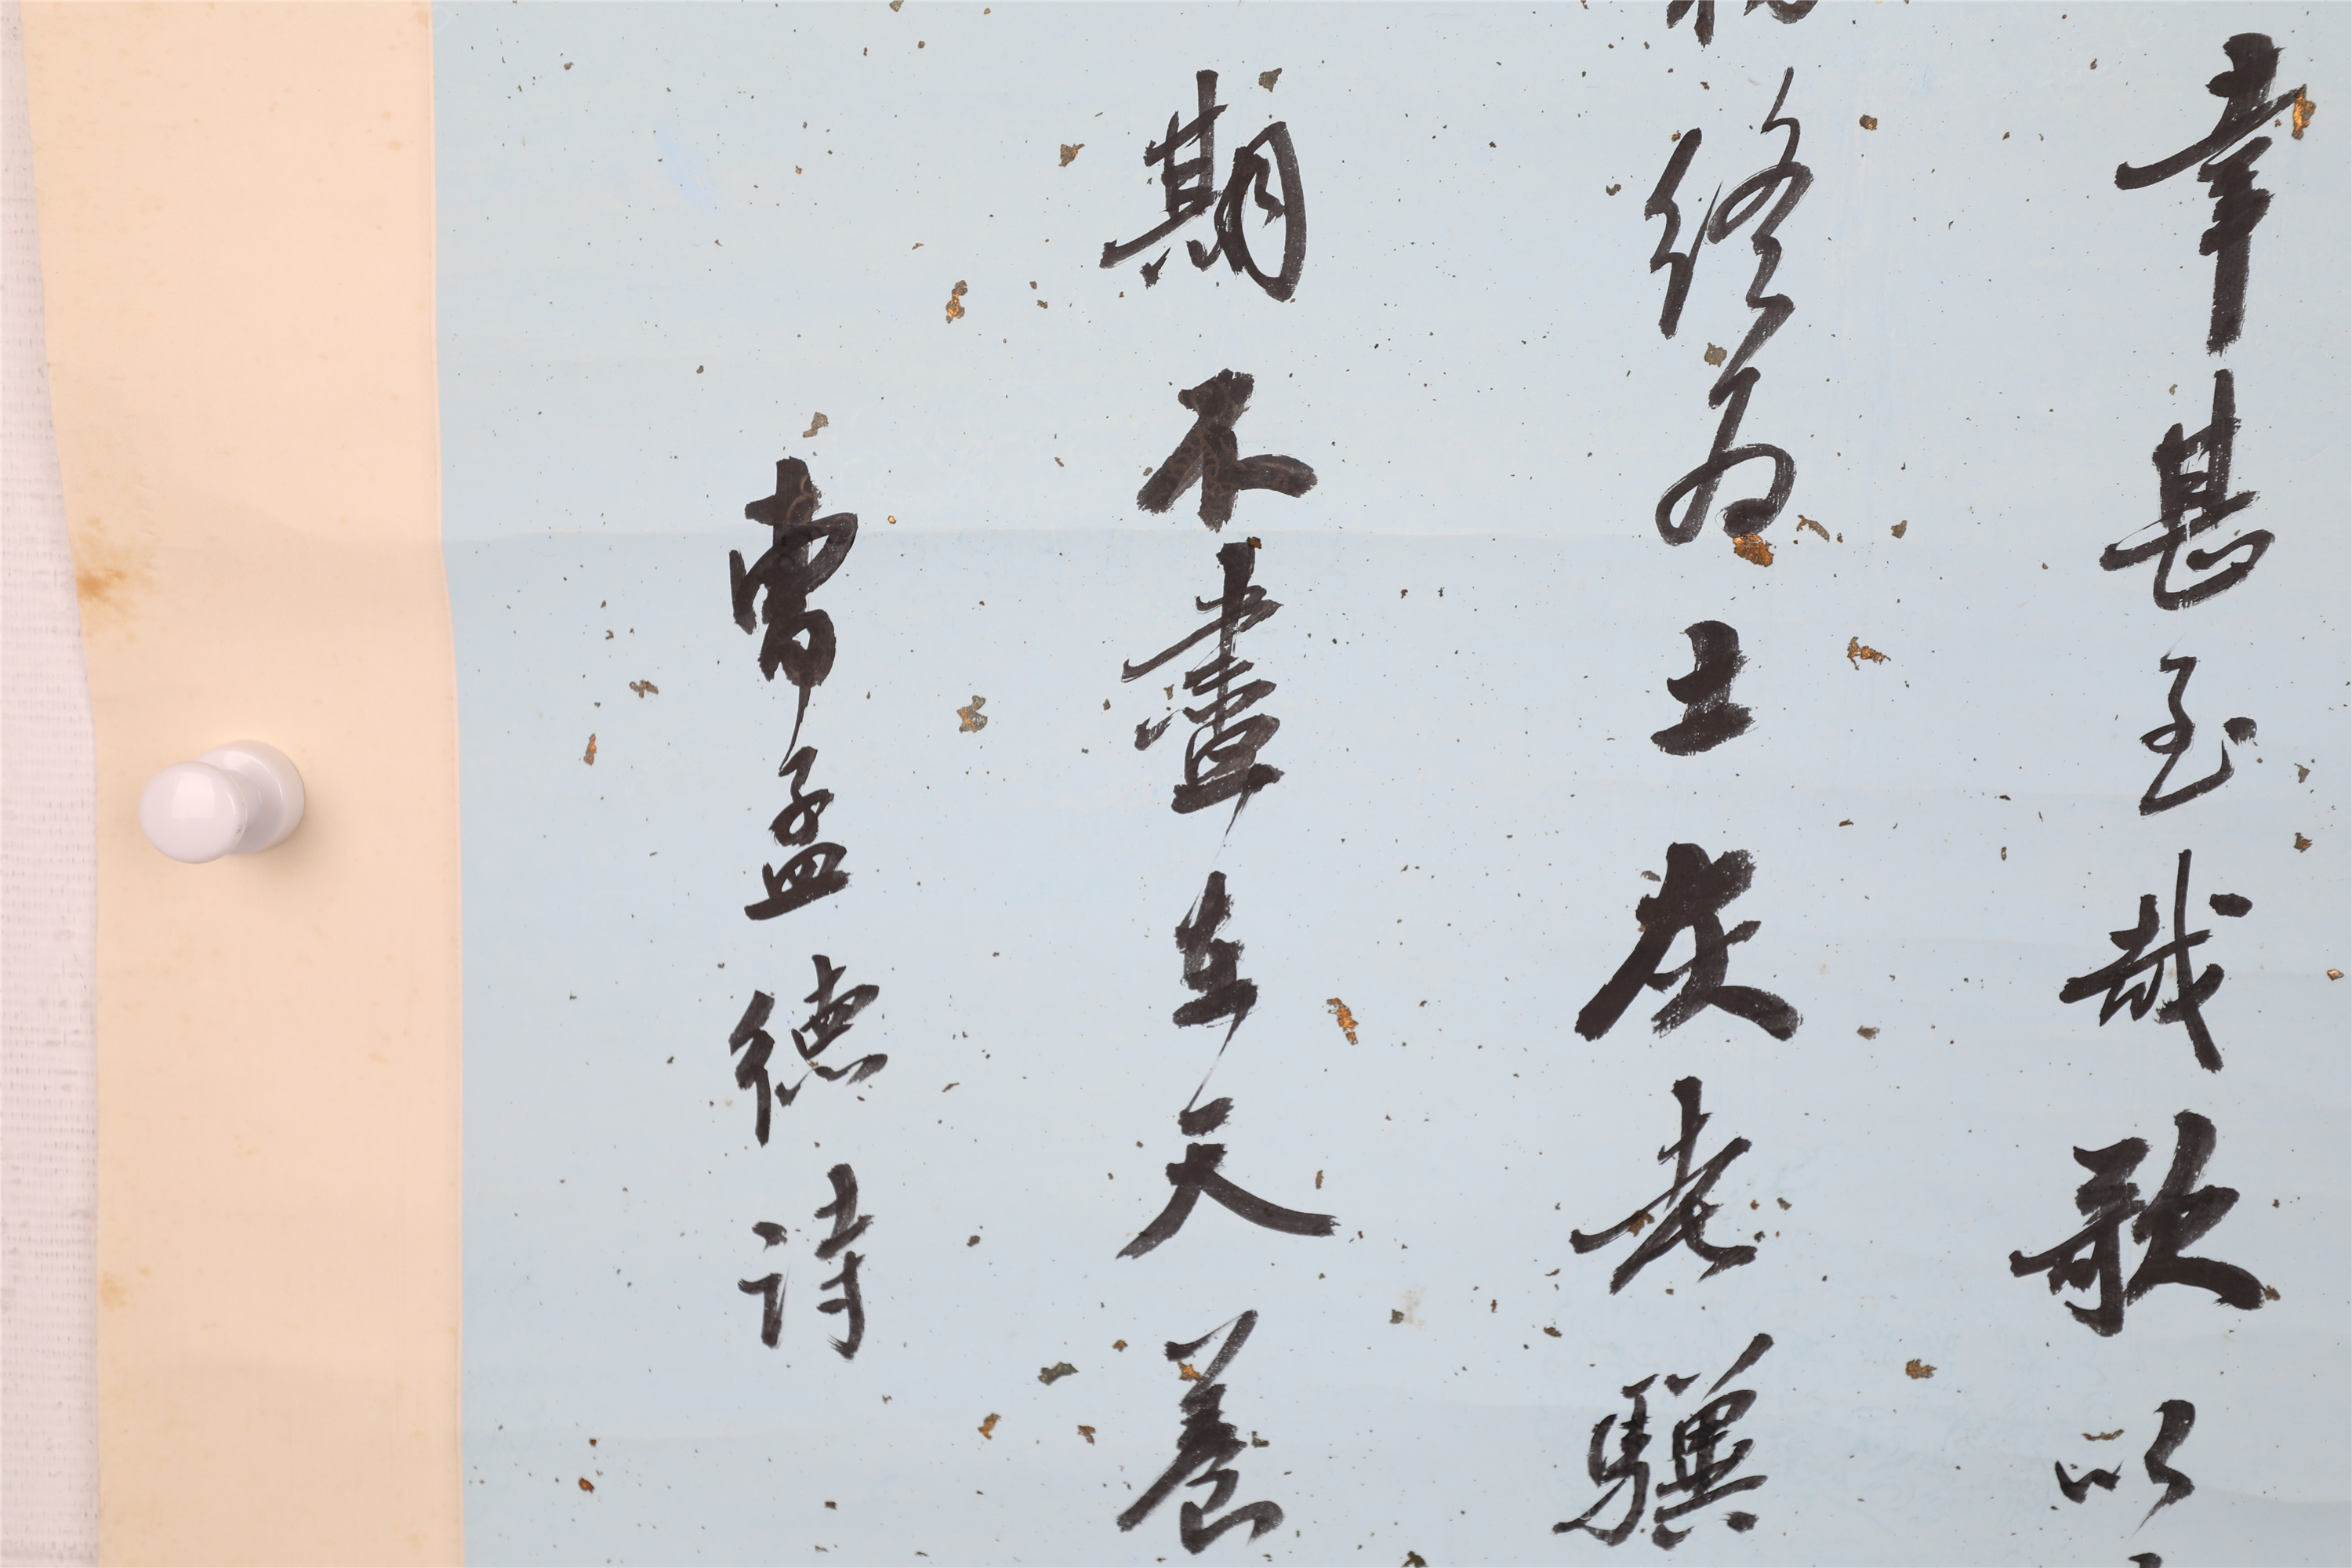 幸甚至哉歌以
終为土灰老驥
期不盡在天養
曹孟德詩